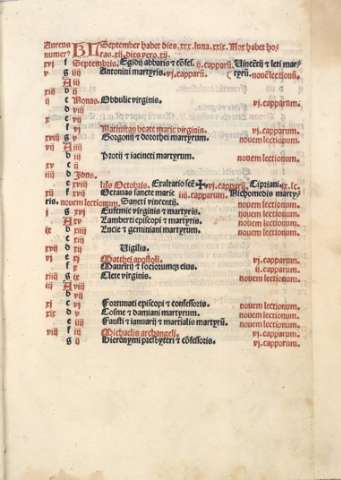 Aureus numer⁹ KL September habet dies .xxx. luna .xxix. Nox habet ho-
ras .xij. Dies vero .xij.
xvj f Septembris. Egidij abbatis & cōfes. ij. capparū. Vincētij & leti mar-
v g iiij Antonini martyris. vj. capparū. tyrū. nouē lectionū.
A iij
xiij b ij
ij c Nonas. Obdulie virginis. vj. capparum.
d viij
x e vij
f vj Natiuitas beate marie virginis. vj. capparum.
xviij g v Gorgonij & dorothei martyrum. nouem lectionum.
vij A iiij
b iij Proti & iacincti martyrum. nouem lectionum.
xv c ij
iiij d Idus.
e xviij kl's Octobris. Exaltatio scē ✠ vj. capparū. Cipriani .ix. lc.
xij f xvij Octauas sancte marie iiij. capparum. Nichomedis marty-
ris. nouem lectionum. Sancti vincentij. nouem lectionum.
j g xvj Eufemie virginis & martyris. nouem lectionum.
A xv Lamberti episcopi & martyris. nouem lectionum.
ix b xiiij Lucie & geminiani martyrum. nouem lectionum.
c xiij
xvij d xij Vigilia.
vj e xj Matthei apostoli. vj. capparum.
f x Mauritij & sociorum eius. ij. capparum.
xiiij g ix Tecle virginis. nouem lectionum.
iij A viij
b vij
xj c vj Fortunati episcopi & confessoris. nouem lectionum.
xix d v Cosme & damiani martyrum. nouem lectionum.
e iiij Fausti & ianuarij & martialis martyrū. nouem lectionum.
viij f iij Michaelis archangeli. vj. capparum.
g ij Hieronymi presbyteri & cōfessoris. vj. capparum.